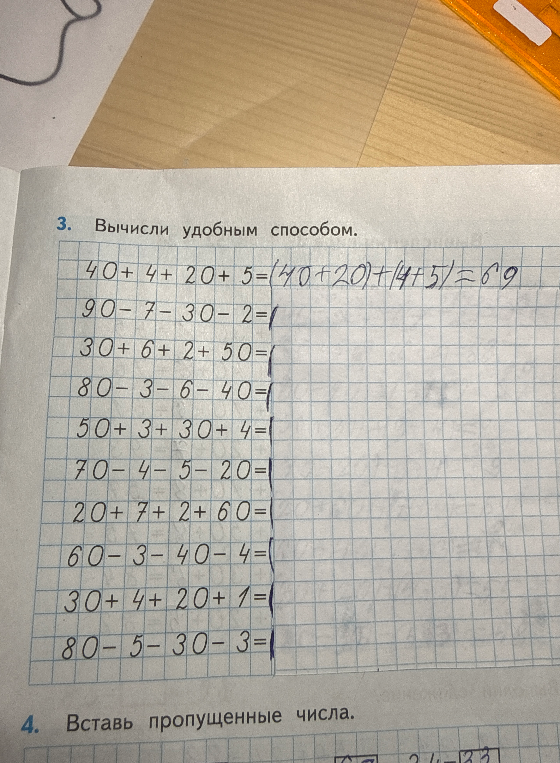 3. Вычисли удобным способом.
40+ 4+ 20+ 5=(40+20)+(4+5)=69
90- 7- 30- 2=(
30+ 6+ 2+ 50=(
80- 3- 6- 40=(
50+ 3+ 30+ 4=(
70- 4- 5- 20=(
20+ 7+ 2+ 60=(
60- 3- 40- 4=(
30+ 4+ 20+ 1=(
80- 5- 30- 3=(
4. Вставь пропущенные числа.